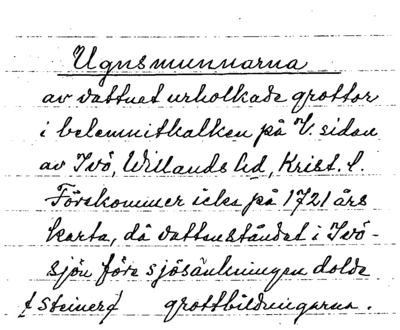 Ugnsmunnarna
av vattnet urholkade grottor
i belemnitkalken på V. sidan
av Ivö, Willands hd, Krist. l.
Förekommer icke på 1721 års
karta, då vattenståndet i Ivö-
sjön före sjösänkningen dolde
grottbildningarna.